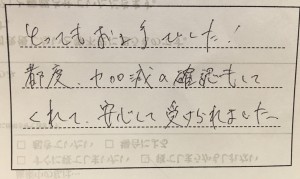 とってもお上手でした!
都度、力加減の確認もして
くれて、安心して受けられました〜